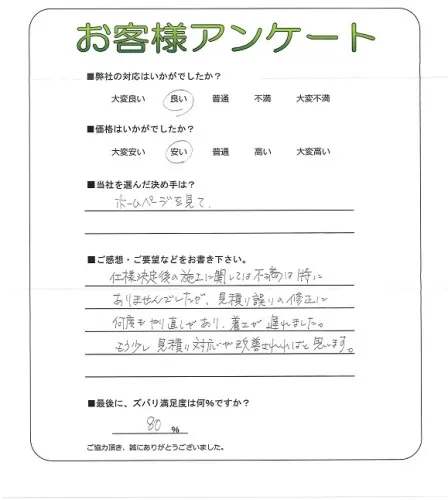 お客様アンケート
■弊社の対応はいかがでしたか？
大変良い 良い 普通 不満 大変不満
■価格はいかがでしたか？
大変安い 安い 普通 高い 大変高い
■当社を選んだ決め手は？
ホームページを見て、
■ご感想・ご要望などをお書き下さい。
仕様決定後の施工に関しては不満は特に
ありませんでしたが、見積り誤りの修正に
何度もやり直しがあり、着工が遅れました。
もう少し見積り対応が改善されればと思います。
■最後に、ズバリ満足度は何％ですか？
80 ％
ご協力頂き、誠にありがとうございました。